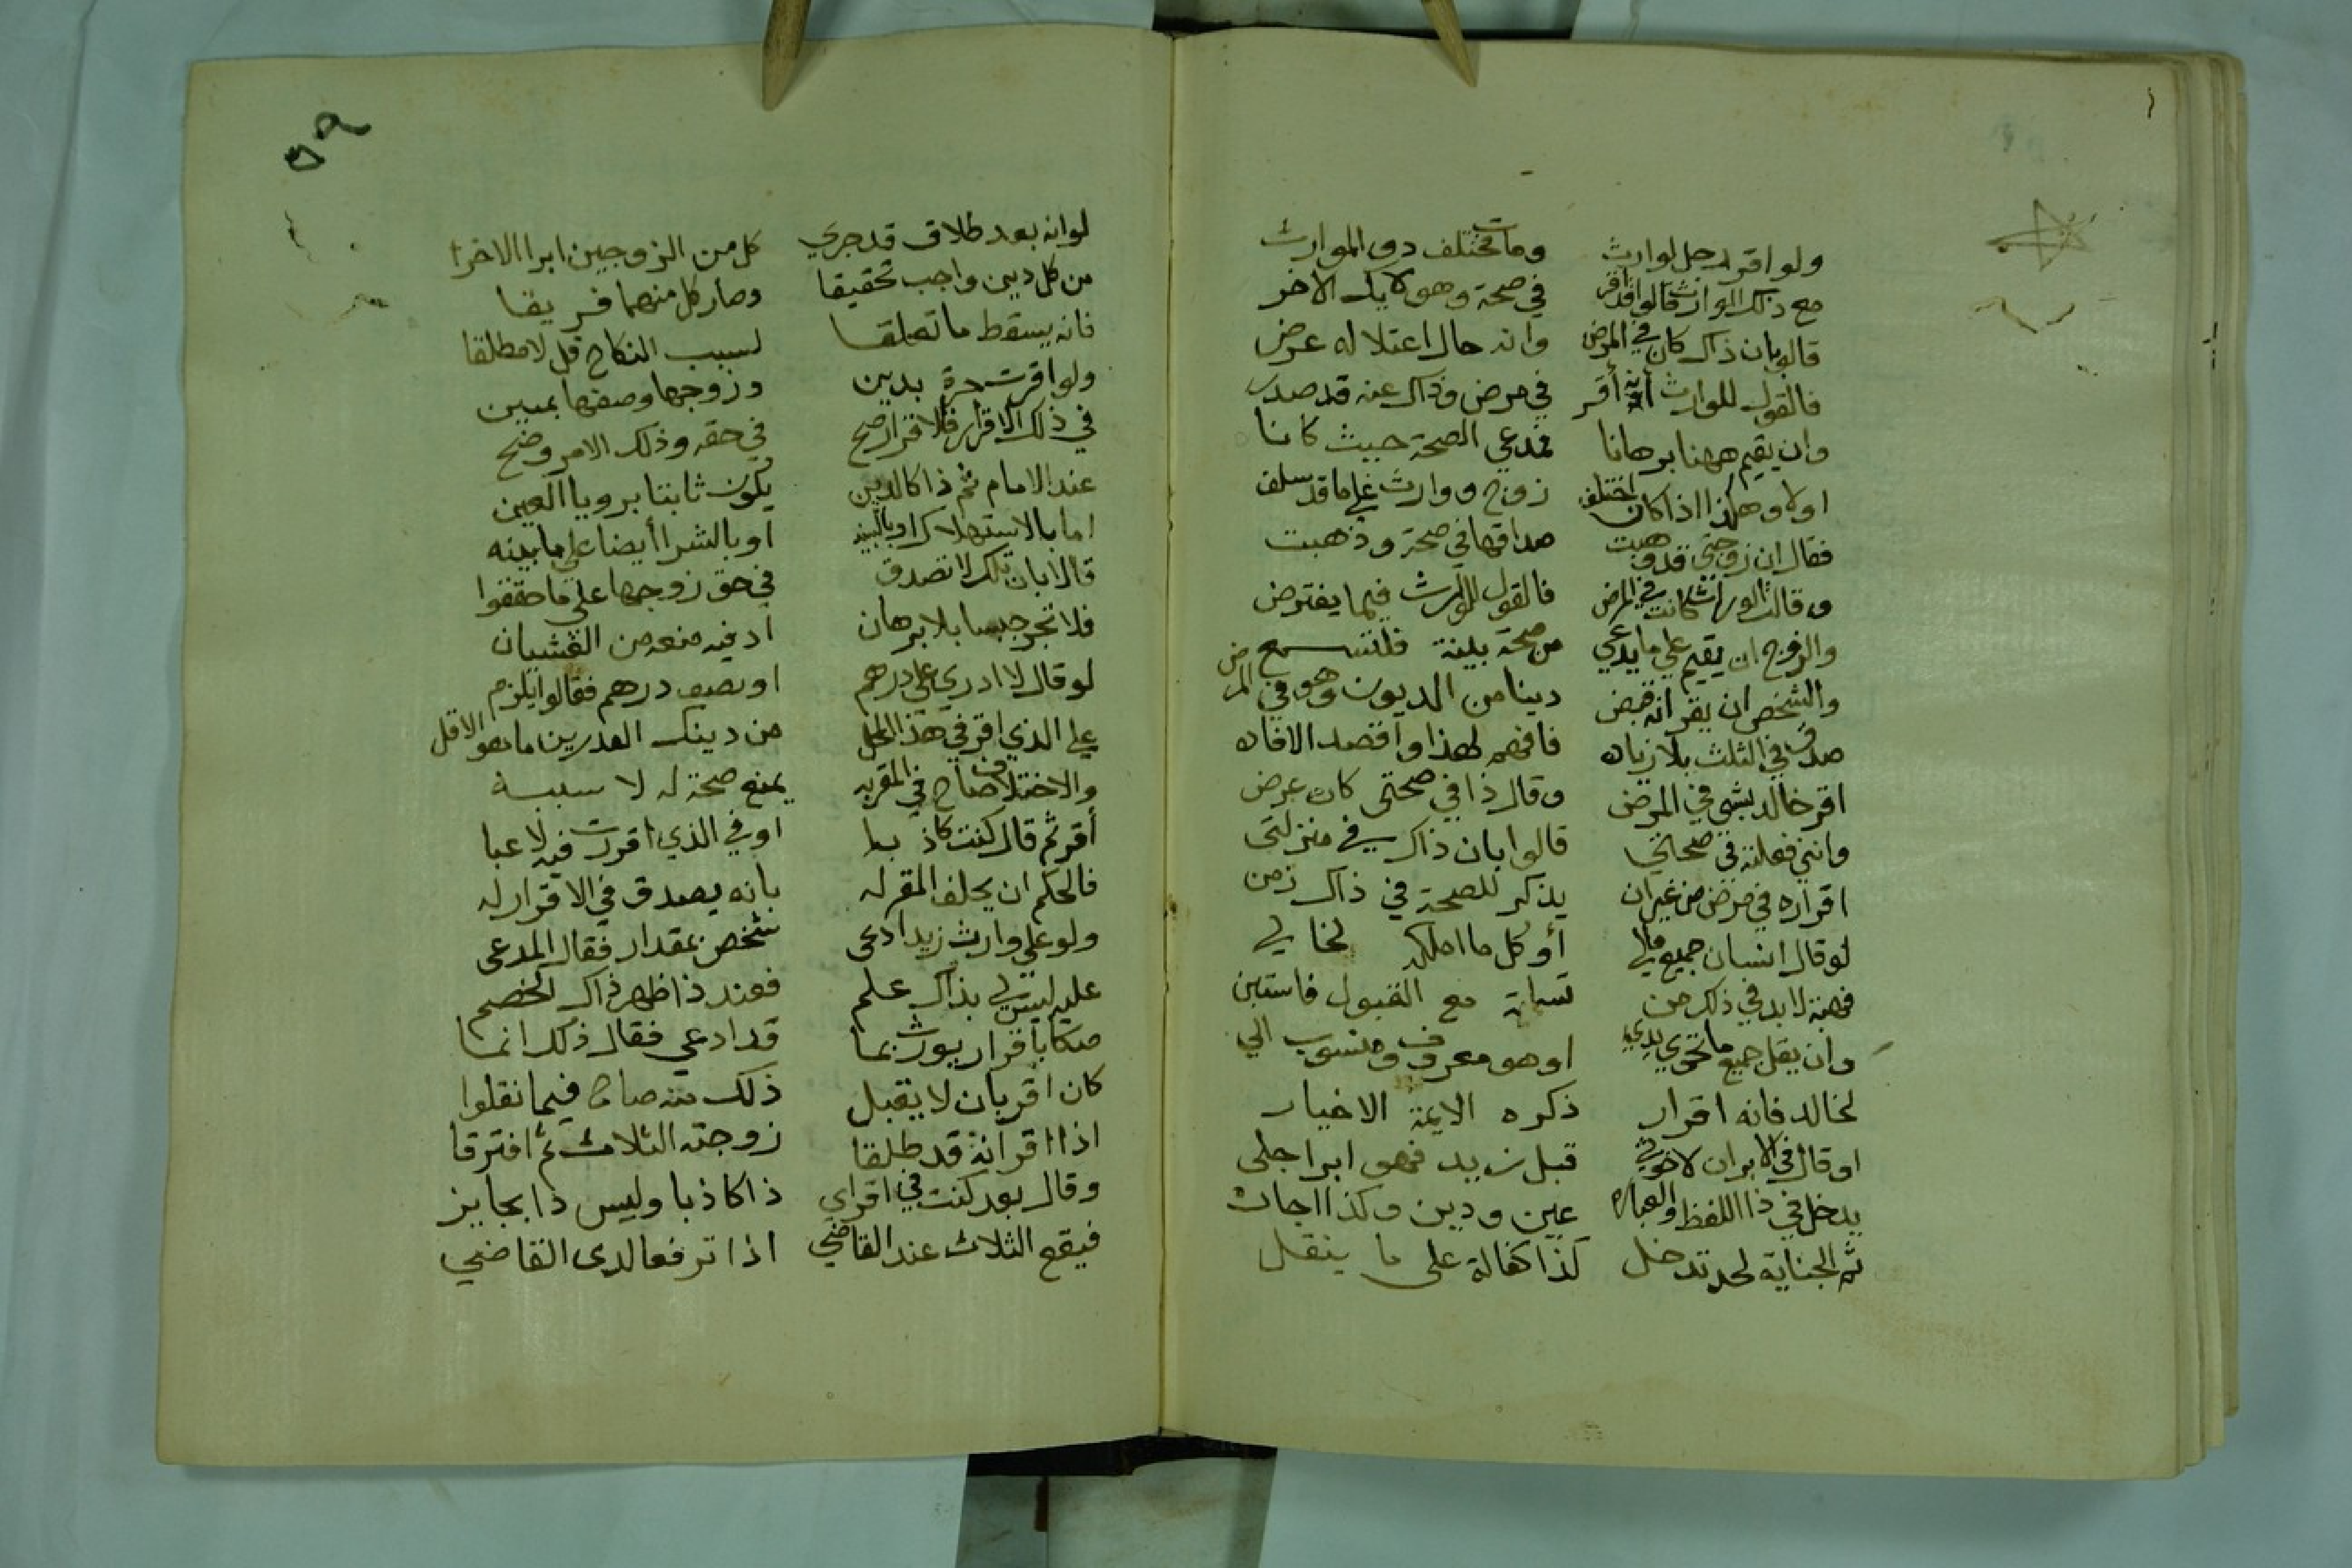 ولو اقر رجل لوارث ومات فختلف ذوى الموارث
مع ذلك الوارث قالوا قد اقر في صحة وهو لا يك الاخر
قالوا بان ذاك كان في المرض وانه حال اعتلاله عرض
فالقول للوارث انه أقر في مرض وذاك عنه قد صدر
وان يقيم ههنا برهانا فمدعي الصحة حيث كانا
اولا وهكذا اذا كان اختلف زوج ووارث علي ما قد سلف
فقال ان زوجتي قد وهبت صداقها في صحة وذهبت
وقالت الوراث كانت في المرض فالقول للوارث فيما يفترض
والزوج ان يقيم علي ما يدعي من صحة بينة فلتسمع
والشخص ان يقر انه قبض دينا من المديون وهو في المرض
صدق في الثلث بلا زياده فافهم لهذا واقصد الافاده
اقر خالد بشي في المرض وقال ذا في صحتى كان عرض
وانني فعلته في صحاتي قالوا بان ذاك في منزلتى
اقراره في مرض من غير ان يذكر للصحة في ذاك زمن
لو قال انسان جميع مالي أو كل ما املكه لخالي
فهبة لا بد في ذلك من تسامة مع القبول فاستبن
وان يقل جميع ما تحوي يدي او هو معروف ومنسوب الي
لخالد فانه اقرار ذكره الايمة الاخيار
او قال في الابران لا حق لي قبل زيد فهو ابرا جلى
يدخل في ذا اللفظ والعباره عين ودين وكذا اجاره
ثم الجناية لحد تدخل كذا كفالة على ما ينقل
٥٩
لو انه بعد طلاق قد جري كل من الزوجين ابرا الاخرا
من كل دين واجب تحقيقا وصار كل منهما فريقا
فانه يسقط ما تعلقا لسبب النكاح قل لا مطلقا
ولو اقرت حرة بدين وزوجها وصفها بمين
في ذلك الاقرار فالاقرار صح في حقه وذلك الامر وضح
عند الامام ثم ذا كالدين يكون ثابتا برويا العين
اما بالاستهلاك او بالبينه او بالشرا أيضا علي ما بينه
قالا بان تلك لا تصدق في حق زوجها علي ما حققوا
فلا تجر حبسا بلا برهان اذ فيه منعه من الغشيان
لو قال لا ادري علي درهم او نصف درهم فقالوا يلزم
علي الذي اقر في هذا المحل من دينك القدرين ما هو الاقل
والاختلاف صاح في المقر به يمنع صحة له لا سببه
أقر ثم قال كنت كاذبا او في الذي اقررت فيه لاعبا
فالحكم ان يحلف المقر له بانه يصدق في الاقرار له
ولو علي وارث زيد ادعى شخص بمقدار فقال المدعى
عليه ليس لي بذاك علم فعند ذا ظهر ذاك الخصم
صكا باقرار يورث بما قد ادعي فقال ذلك انما
كان اقر بان لا يقبل ذلك منه صاح فيما نقلوا
اذا اقر انه قد طلقا زوجته الثلاث ثم افترقا
وقال بعد كنت في اقراي ذا كاذبا وليس ذا بجايز
فيقع الثلاث عند القاضي اذا ترفعا لدى القاضي